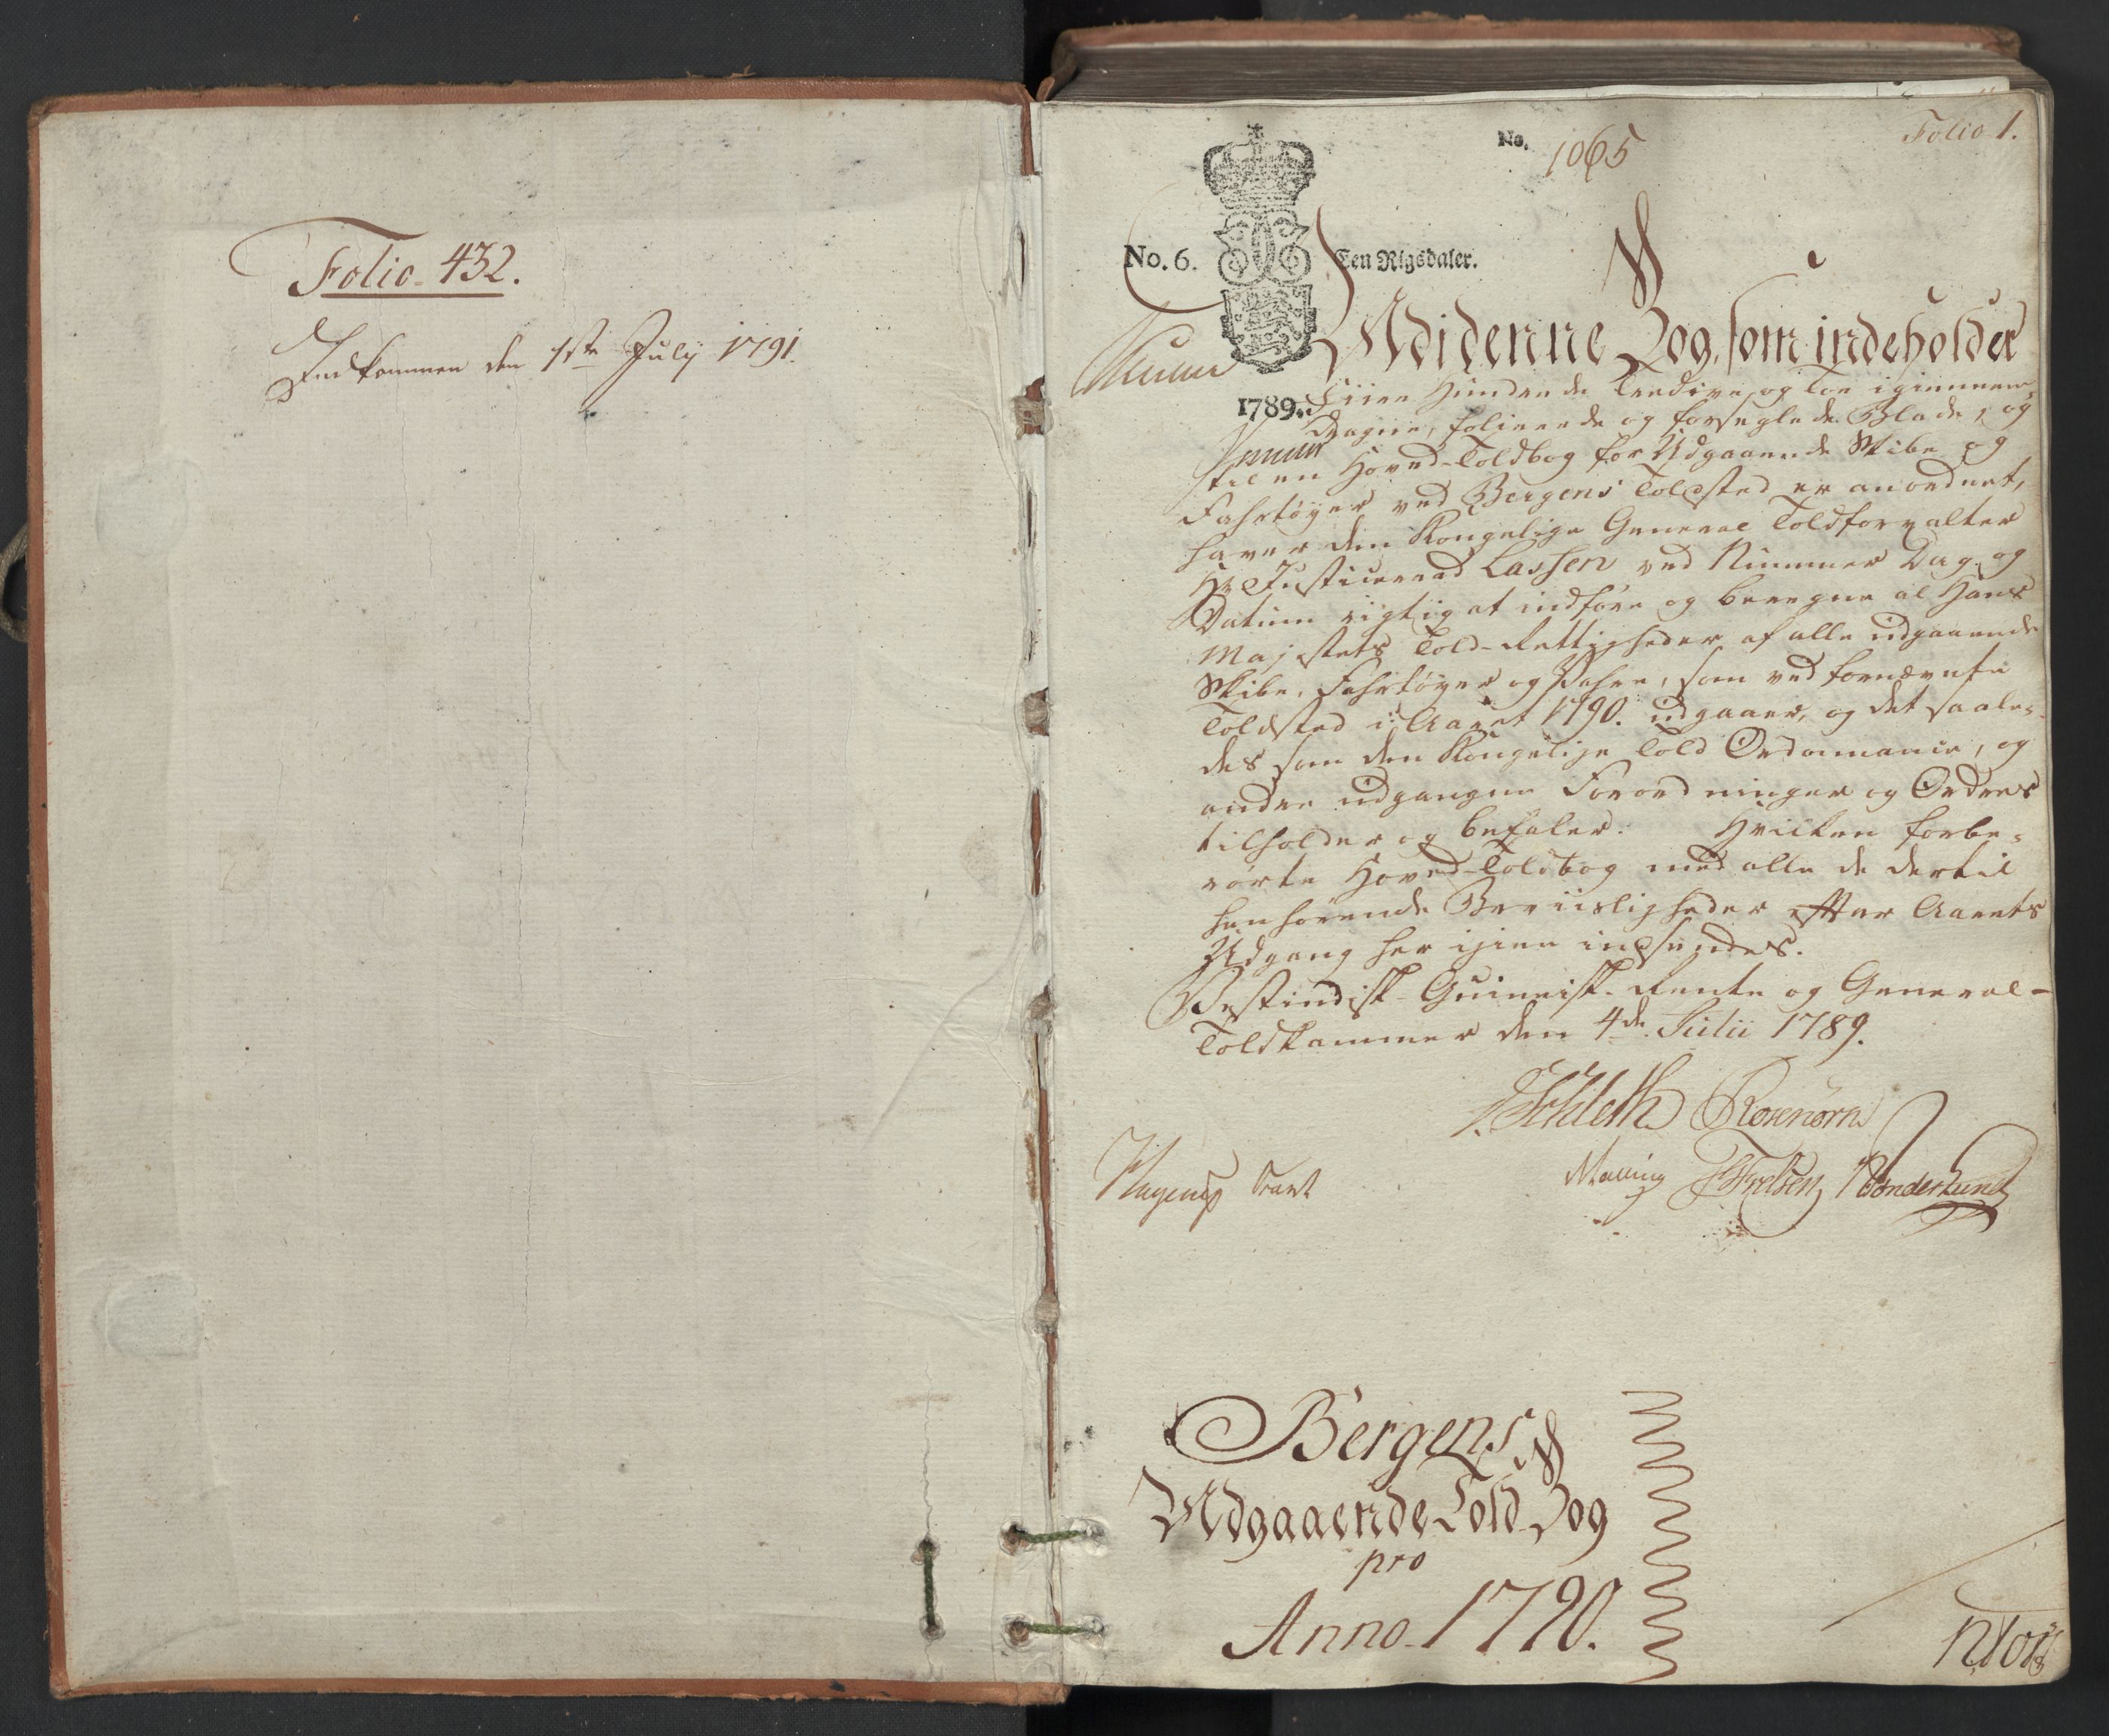 Folio 432.
Indkommen den 1ste July 1791.
No. 1065
Folio 1.
No. 6. Een Rigsdaler.
Udi denne Bog, som indeholder
1789. Fiire Hundrede Tredive og Toe igiennem-
dragne, folierede og forseglede Blade, og
til en Hoved-Toldbog for Udgaaende Skibe og
Fahrtøyer ved Bergens Toldsted er anordnet,
haver den Kongelige General Toldforvalter
Hr Justiceraad Lassen ved Nummer Dag og
Datum rigtig at indføre og beregne al Hans
Majestets Told-Rettigheder af alle udgaaende
Skibe, Fahrtøyer og Vahre, som ved fornævnte
Toldsted i Aaret 1790. udgaaer, og det saale-
des som den Kongelige Told Ordonnance, og
andre udgangne Forordninger og Ordres
tilholder og befaler. Hvilken forbe-
rørte Hoved-Toldbog med alle de dertil
henhørende Beviisligheder efter Aarets
Udgang her igien indsendes.
Vestindisk-Guineisk-Rente og General-
Toldkammer den 4de Julii 1789.
Schleth Rosenørn
Hagerup Malling
Bergens
Udgaaende Told Bog
pro
Anno 1790.